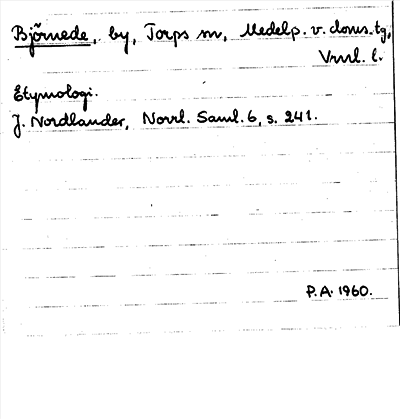 Björnede, by, Torps sn, Medelp. v. doms.tg,
Vnrl. l.
Etymologi.
J. Nordlander, Norrl. Saml. 6, s. 241.
P.A. 1960.